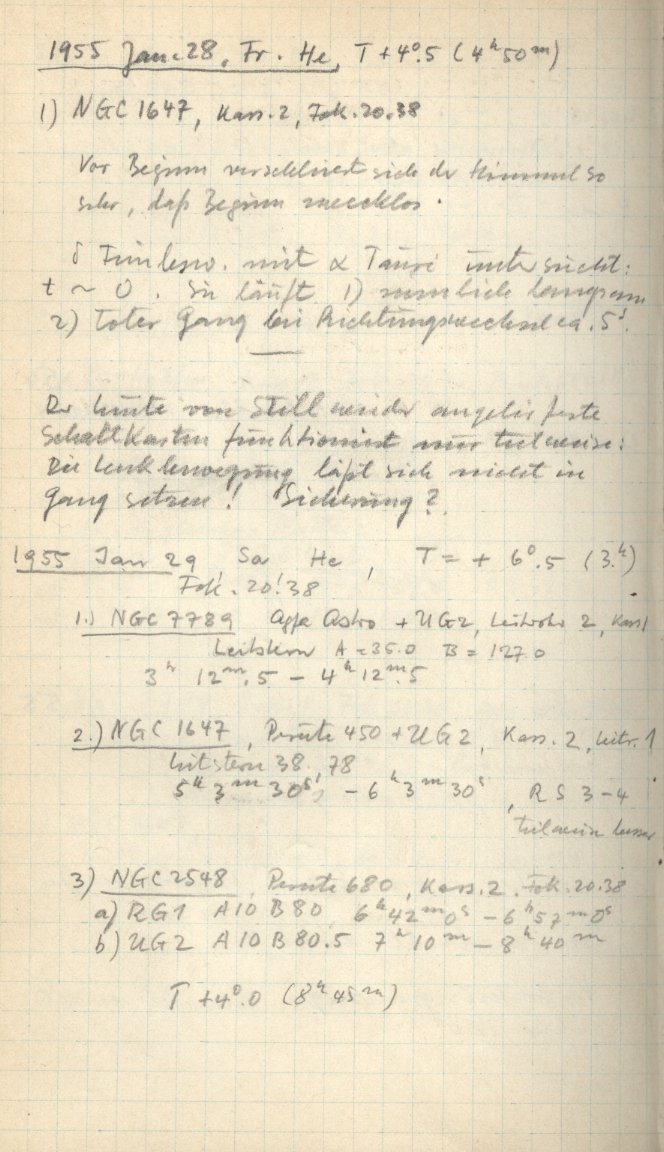 1955 Jan. 28, Fr. He, T+4°.5 (4ʰ50ᵐ)
1) NGC 1647, Kass. 2, Fok. 20.38
Vor Beginn verschlechtert sich der Himmel so
sehr, daß Beginn zwecklos.
δ Feinbew. mit α Tauri untersucht:
t ~ 0. Sie läuft 1) ziemlich langsam
2) Toter Gang bei Richtungswechsel ca. 5ˢ.
Der heute von angelieferte
Schaltkasten funktioniert nur teilweise:
Die Senkbewegung läßt sich nicht in
Gang setzen! Sicherung?
1955 Jan 29, Sa He, T = + 6°.5 (3.ʰ)
Fok. 20.38
1.) NGC 7789 Agfa Astro + UG2, Leitrohr 2, Kass 1
Leitstern A = 35.0 B = 127.0
3ʰ 12ᵐ.5 – 4ʰ 12ᵐ.5
2.) NGC 1647, Perutz 450 + UG2, Kass. 2, Leitr. 1
Leitstern 38. 78
5ʰ 3ᵐ 30ˢ, – 6ʰ 3ᵐ 30ˢ, R S 3–4
teilweise besser
3) NGC 2548, Perutz 680, Kass. 2, Fok. 20.38
a) RG1 A10 B80 6ʰ 42ᵐ 0ˢ – 6ʰ 57ᵐ 0ˢ
b) UG2 A10 B 80.5 7ʰ 10ᵐ – 8ʰ 40ᵐ
T +4°.0 (8ʰ 45ᵐ)